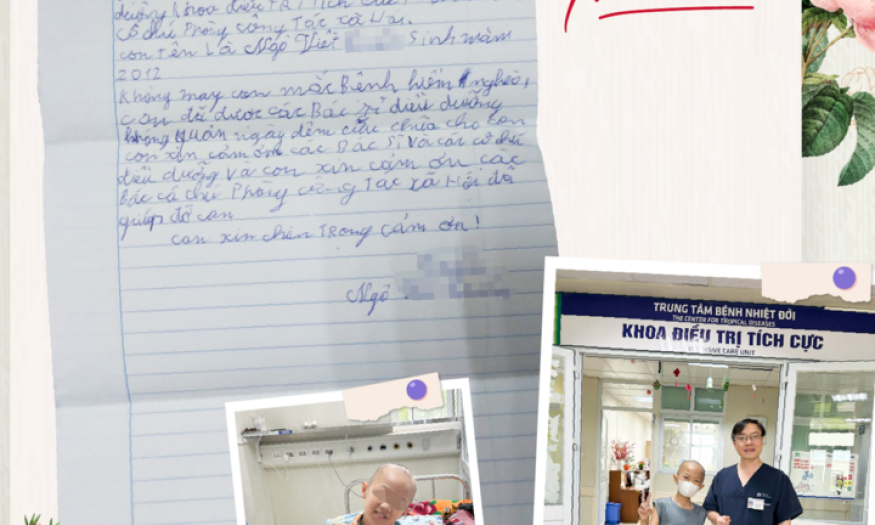 dưỡng Khoa điều TRị Tích cực
cô chú Phòng công Tác xã Hội.
con Tên Là Ngô Viết Sinh năm
2012
Không may con mắc Bệnh hiểm nghèo,
con đã được các Bác sĩ điều dưỡng
không quản ngày đêm cứu chữa cho con
con xin cảm ơn các Bác Sĩ và các cô chú
điều dưỡng và con xin cảm ơn các
Bác cô chú Phòng công Tác xã Hội đã
giúp đỡ con
con xin chân Trọng cảm ơn!
Ngô
TRUNG TÂM BỆNH NHIỆT ĐỚI
THE CENTER FOR TROPICAL DISEASES
KHOA ĐIỀU TRỊ TÍCH CỰC
CARE UNIT